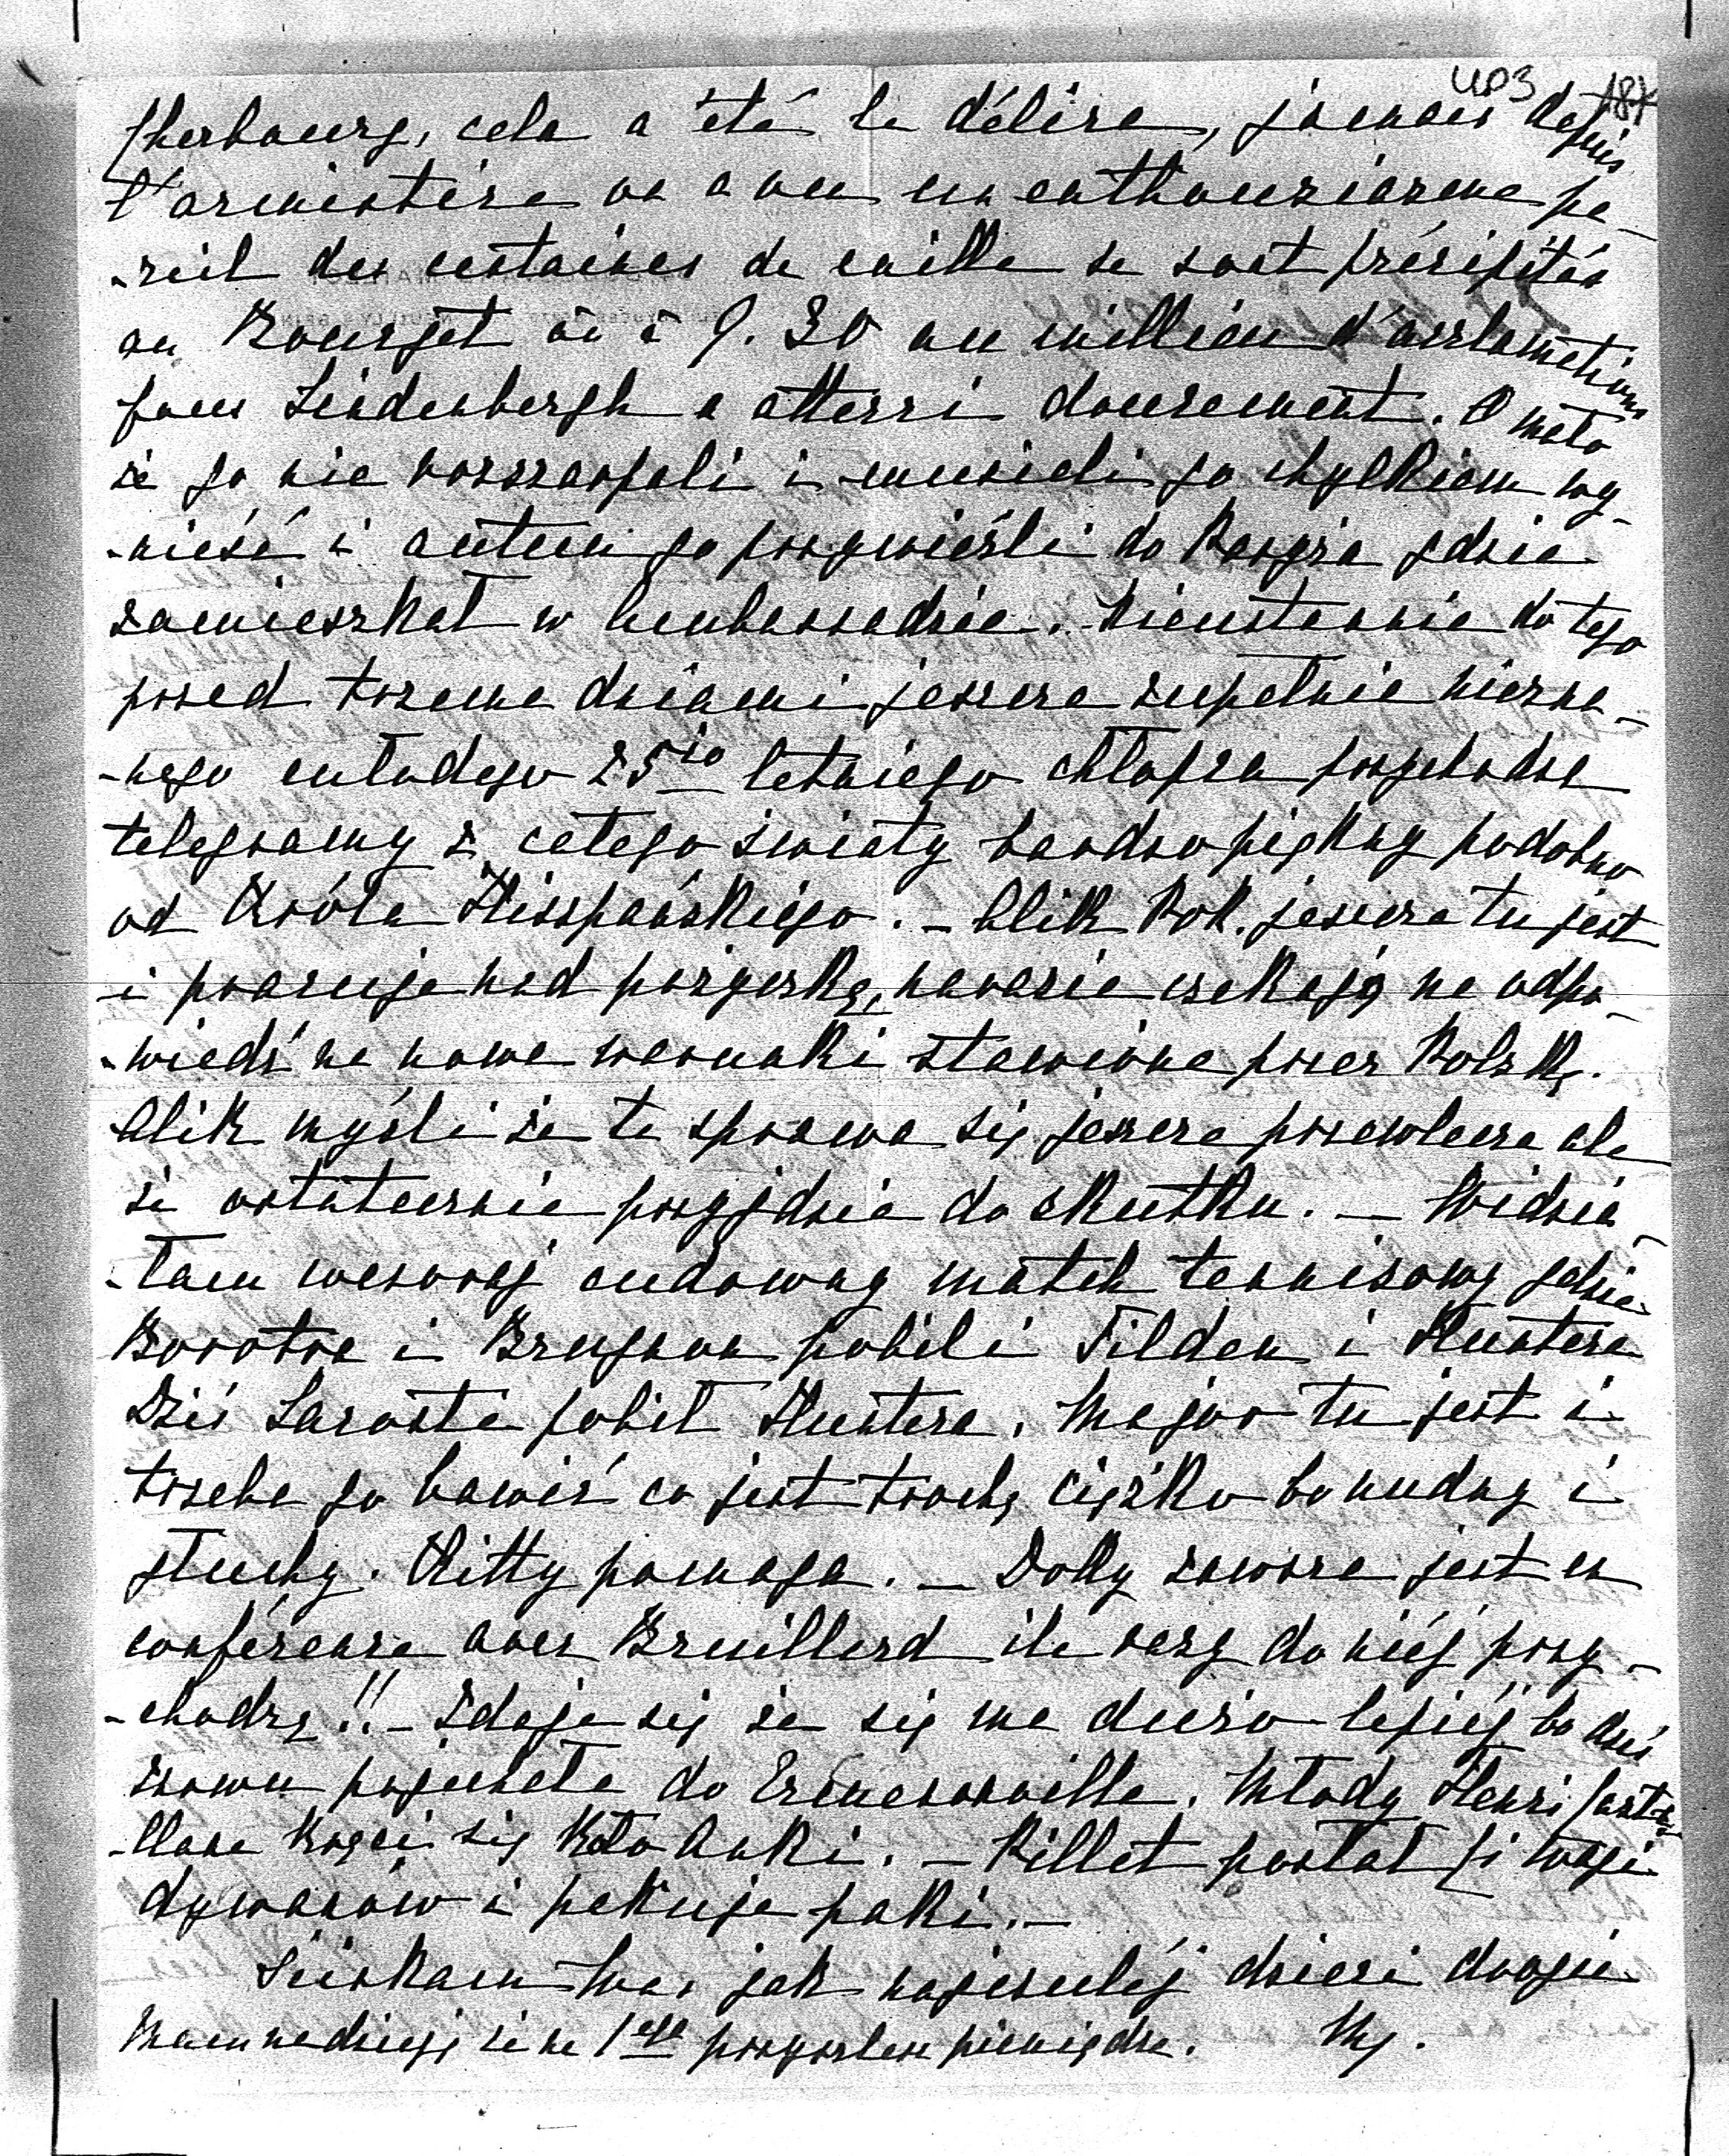 403 187
Cherbourg, cela a été le délire, jamais depuis
l'armistice on a vu un enthousiasme pa-
-reil des centaines de mille se sont précipités
au Bourget où à 9.30 au millieu d'acclamations
fous Lindenbergh a atterri doucement. O mało
że go nie rozszarpali i musieli go chyłkiem wy-
-nieść i autem go przywieźli do Paryża gdzie
zamieszkał w Ambassadzie. Nieustannie do tego
przed trzema dniami jeszcze zupełnie niezna-
-nego młodego 25cio letniego chłopca przychodzą
telegramy z całego świata bardzo piękny podobno
od Króla Hiszpańskiego. – Alik Pok. jeszcze tu jest
i pracuje nad pożyczką, narazie czekają na odpo-
-wiedź na nowe warunki stawione przez Polskę.
Alik myśli że ta sprawa się jeszcze przewlecze ale
że ostatecznie przyjdzie do skutku. – Widzia-
-łam wczoraj cudowny match tennisowy gdzie
Borotra i Brugnon pobili Tilden i Huntera
Dziś Lacoste pobił Huntera. Major tu jest i
trzeba go bawić co jest trochę ciężko bo nudny i
głuchy. Kitty pomaga. – Dolly zawsze jest en
conférence avec Bruillard ile razy do niéj przy-
-chodzę!! – Zdaje się że się ma dużo lepiéj bo dziś
znowu pojechała do Ermenonville. Młody Henri
kręci się koło Anki. – Pillet posłał wagi
dywanów i pakuje paki. –
Ściskam Was jak najczuléj dzieci drogie
Mam nadzieję że na 1ego przyszlesz pieniądze. My.